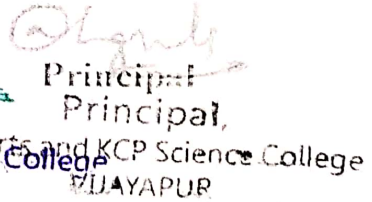 Principal
Principal,
and KCP Science College
College
VIJAYAPUR